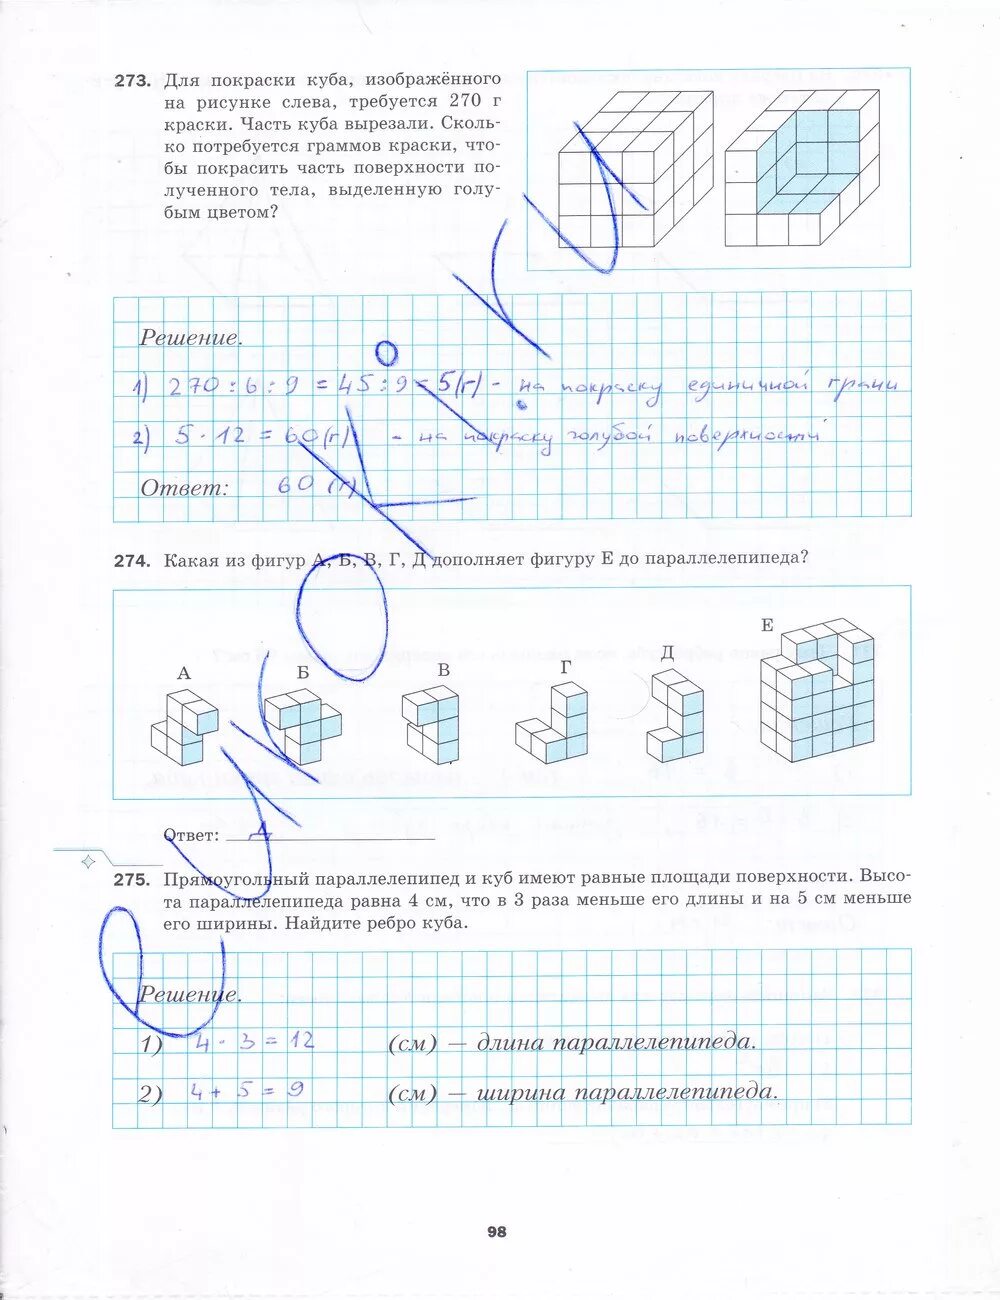 273. Для покраски куба, изображённого
на рисунке слева, требуется 270 г
краски. Часть куба вырезали. Сколь-
ко потребуется граммов краски, что-
бы покрасить часть поверхности по-
лученного тела, выделенную голу-
бым цветом?
Решение.
1) 270 : 6 : 9 = 45 : 9 = 5 (г) - на покраску единичной грани
2) 5 · 12 = 60 (г) - на покраску голубой поверхности
Ответ: 60 (г)
274. Какая из фигур А, Б, В, Г, Д дополняет фигуру Е до параллелепипеда?
А Б В Г Д Е
Ответ: Д
275. Прямоугольный параллелепипед и куб имеют равные площади поверхности. Высо-
та параллелепипеда равна 4 см, что в 3 раза меньше его длины и на 5 см меньше
его ширины. Найдите ребро куба.
Решение.
1) 4 · 3 = 12 (см) — длина параллелепипеда.
2) 4 + 5 = 9 (см) — ширина параллелепипеда.
98